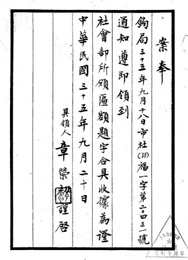 案奉
鈞局三十五年九月十八日市社(卅)福一字第二○三一號
通知遵即領到
社會部所頒匾額題字合具收據為證
中華民國三十五年九月二十日
具領人章榮初謹啓